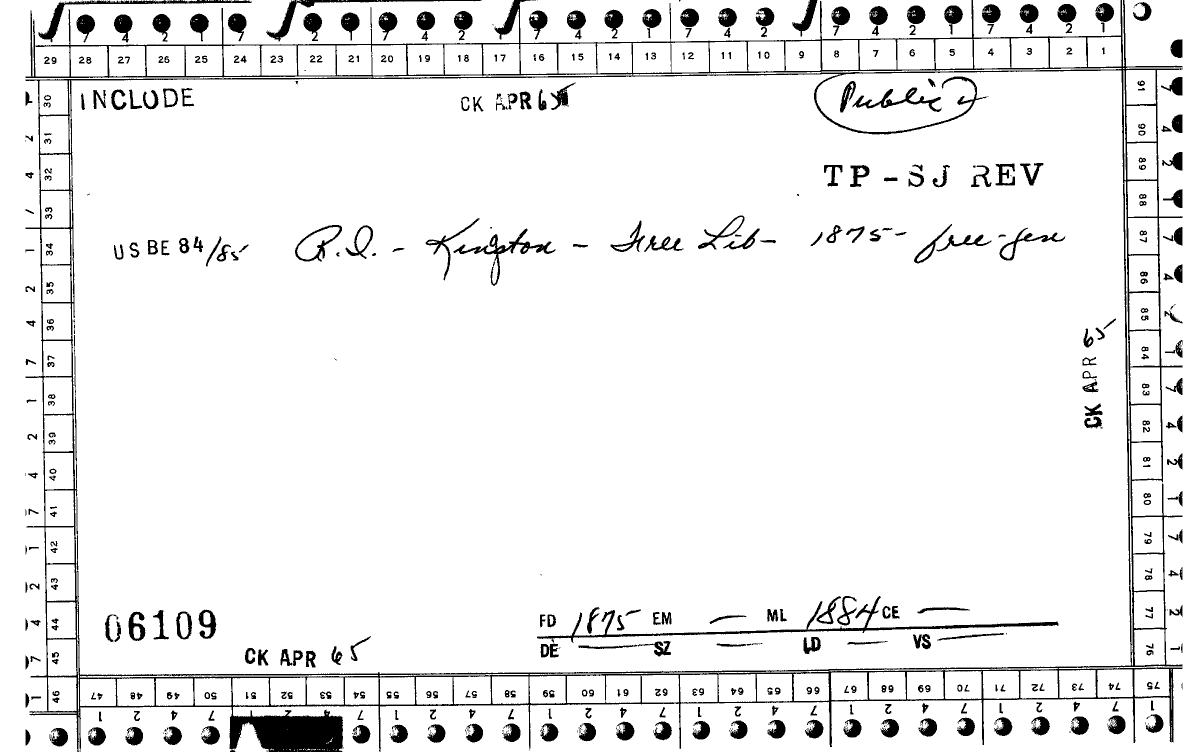 7 4 2 1 7 2 1 7 4 2 1 7 4 2 1 7 4 2 1 7 4 2 1
29 28 27 26 25 24 23 22 21 20 19 18 17 16 15 14 13 12 11 10 9 8 7 6 5 4 3 2 1
INCLUDE CK APR 65 Public
TP-SJ REV
US BE 84/85 R.I. - Kingston - Free Lib - 1875 - free-gen
CK APR 65
06109
FD 1875 EM — ML 1884 CE —
DE — SZ — LD — VS —
CK APR 65
30 31 32 33 34 35 36 37 38 39 40 41 42 43 44 45 46
91 90 89 88 87 86 85 84 83 82 81 80 79 78 77 76
47 48 49 50 51 52 53 54 55 56 57 58 59 60 61 62 63 64 65 66 67 68 69 70 71 72 73 74 75